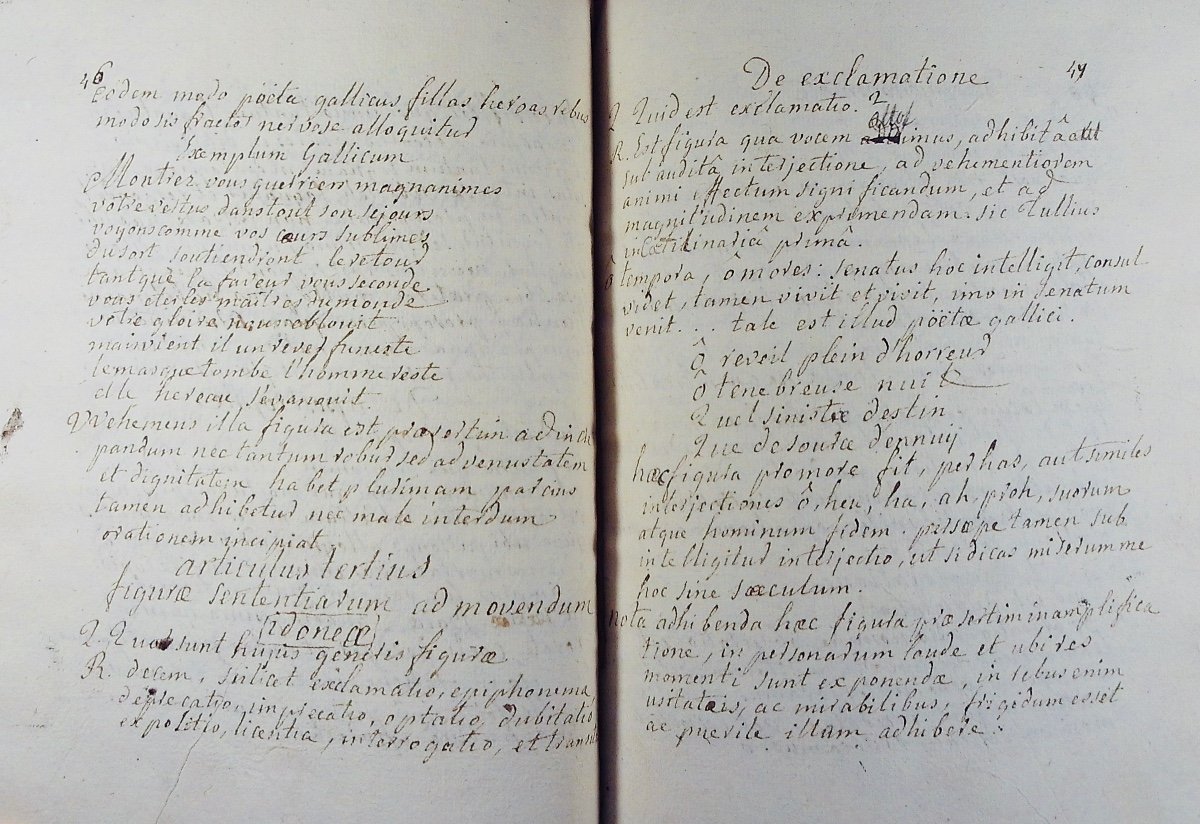 46
Eodem modo pöeta gallicus fillas heroas rebus
modo sis fractos nervose alloquitur
Exemplum Gallicum
Montrez vous guerriers magnanimes
votre vertus dans tout son sejours
voyons comme vos cœurs sublimes
du sort soutiendront le retour
tantque la faveur vous seconde
vous etes les maitres du monde
votre gloire nous eblouit
mais vient il un revers funeste
le masque tombe l'homme reste
et le hereau s'evanouit.
Vehemens illa figura est præsertim ad incre
pandum nec tantum robur sed ad venustatem
et dignitatem habet plurimam parcius
tamen adhibetur nec male interdum
orationem incipiat.
articulus tertius
figuræ sententiarum ad movendum
idoneæ
Q. Quæ sunt hujus generis figuræ
R. decem, scilicet exclamatio, epiphonema,
deprecatio, imprecatio, optatio, dubitatio,
expolitio, licentia, interrogatio, et
De exclamatione
47
Q Quid est exclamatio.?
R. Est figura qua vocem attollimus, adhibitâ aut
subauditâ interjectione, ad vehementiorem
animi affectum significandum, et ad
magnitudinem exprimendam. sic Tullius
in Catilinariâ primâ.
ô tempora, ô mores: senatus hoc intelligit, consul
videt, tamen vivit et vivit, imo in senatum
venit... tale est illud pöetæ gallici.
Ô reveil plein d'horreur
ô tenebreuse nuit
Quel sinistre destin
Que de source d'ennuij
hæc figura pro more fit, per has, aut similes
interjectiones ô, heu, ha, ah, proh, suorum
atque hominum fidem. persæpe tamen sub
intelligitur interjectio, ut si dicas miserum me
hoc sine sæculum.
nota adhibenda hæc figura præsertim in amplifica
tione, in personarum laude et ubi res
momenti sunt exponendæ, in rebus enim
usitatis, ac mirabilibus, frigidum esset
ac puerile illam adhibere.